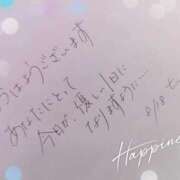 おはようございます
あなたにとって
今日が、優しい1日に
なりますように…
8/8
Happine